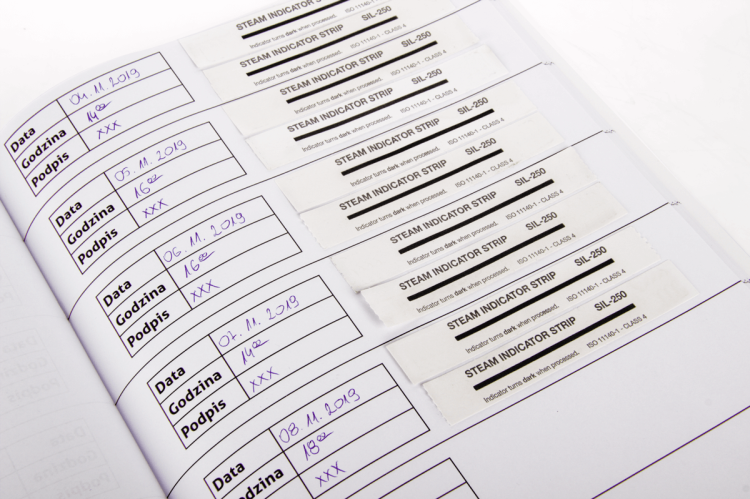 STEAM INDICATOR STRIP
Indicator turns dark when processed. ISO 11140-1 - CLASS 4
STEAM INDICATOR STRIP SIL-250
Indicator turns dark when processed. ISO 11140-1 - CLASS 4
Data 04.11.2019
Godzina 14⁰⁰
Podpis XXX
STEAM INDICATOR STRIP SIL-250
Indicator turns dark when processed. ISO 11140-1 - CLASS 4
STEAM INDICATOR STRIP SIL-250
Indicator turns dark when processed. ISO 11140-1 - CLASS 4
Data 05.11.2019
Godzina 16⁰⁰
Podpis XXX
STEAM INDICATOR STRIP SIL-250
Indicator turns dark when processed. ISO 11140-1 - CLASS 4
STEAM INDICATOR STRIP SIL-250
Indicator turns dark when processed. ISO 11140-1 - CLASS 4
Data 06.11.2019
Godzina 16⁰⁰
Podpis XXX
STEAM INDICATOR STRIP SIL-250
Indicator turns dark when processed. ISO 11140-1 - CLASS 4
STEAM INDICATOR STRIP SIL-250
Indicator turns dark when processed. ISO 11140-1 - CLASS 4
Data 07.11.2019
Godzina 14⁰⁰
Podpis XXX
STEAM INDICATOR STRIP SIL-250
Indicator turns dark when processed. ISO 11140-1 - CLASS 4
STEAM INDICATOR STRIP SIL-250
Indicator turns dark when processed. ISO 11140-1 - CLASS 4
Data 08.11.2019
18⁰⁰
XXX